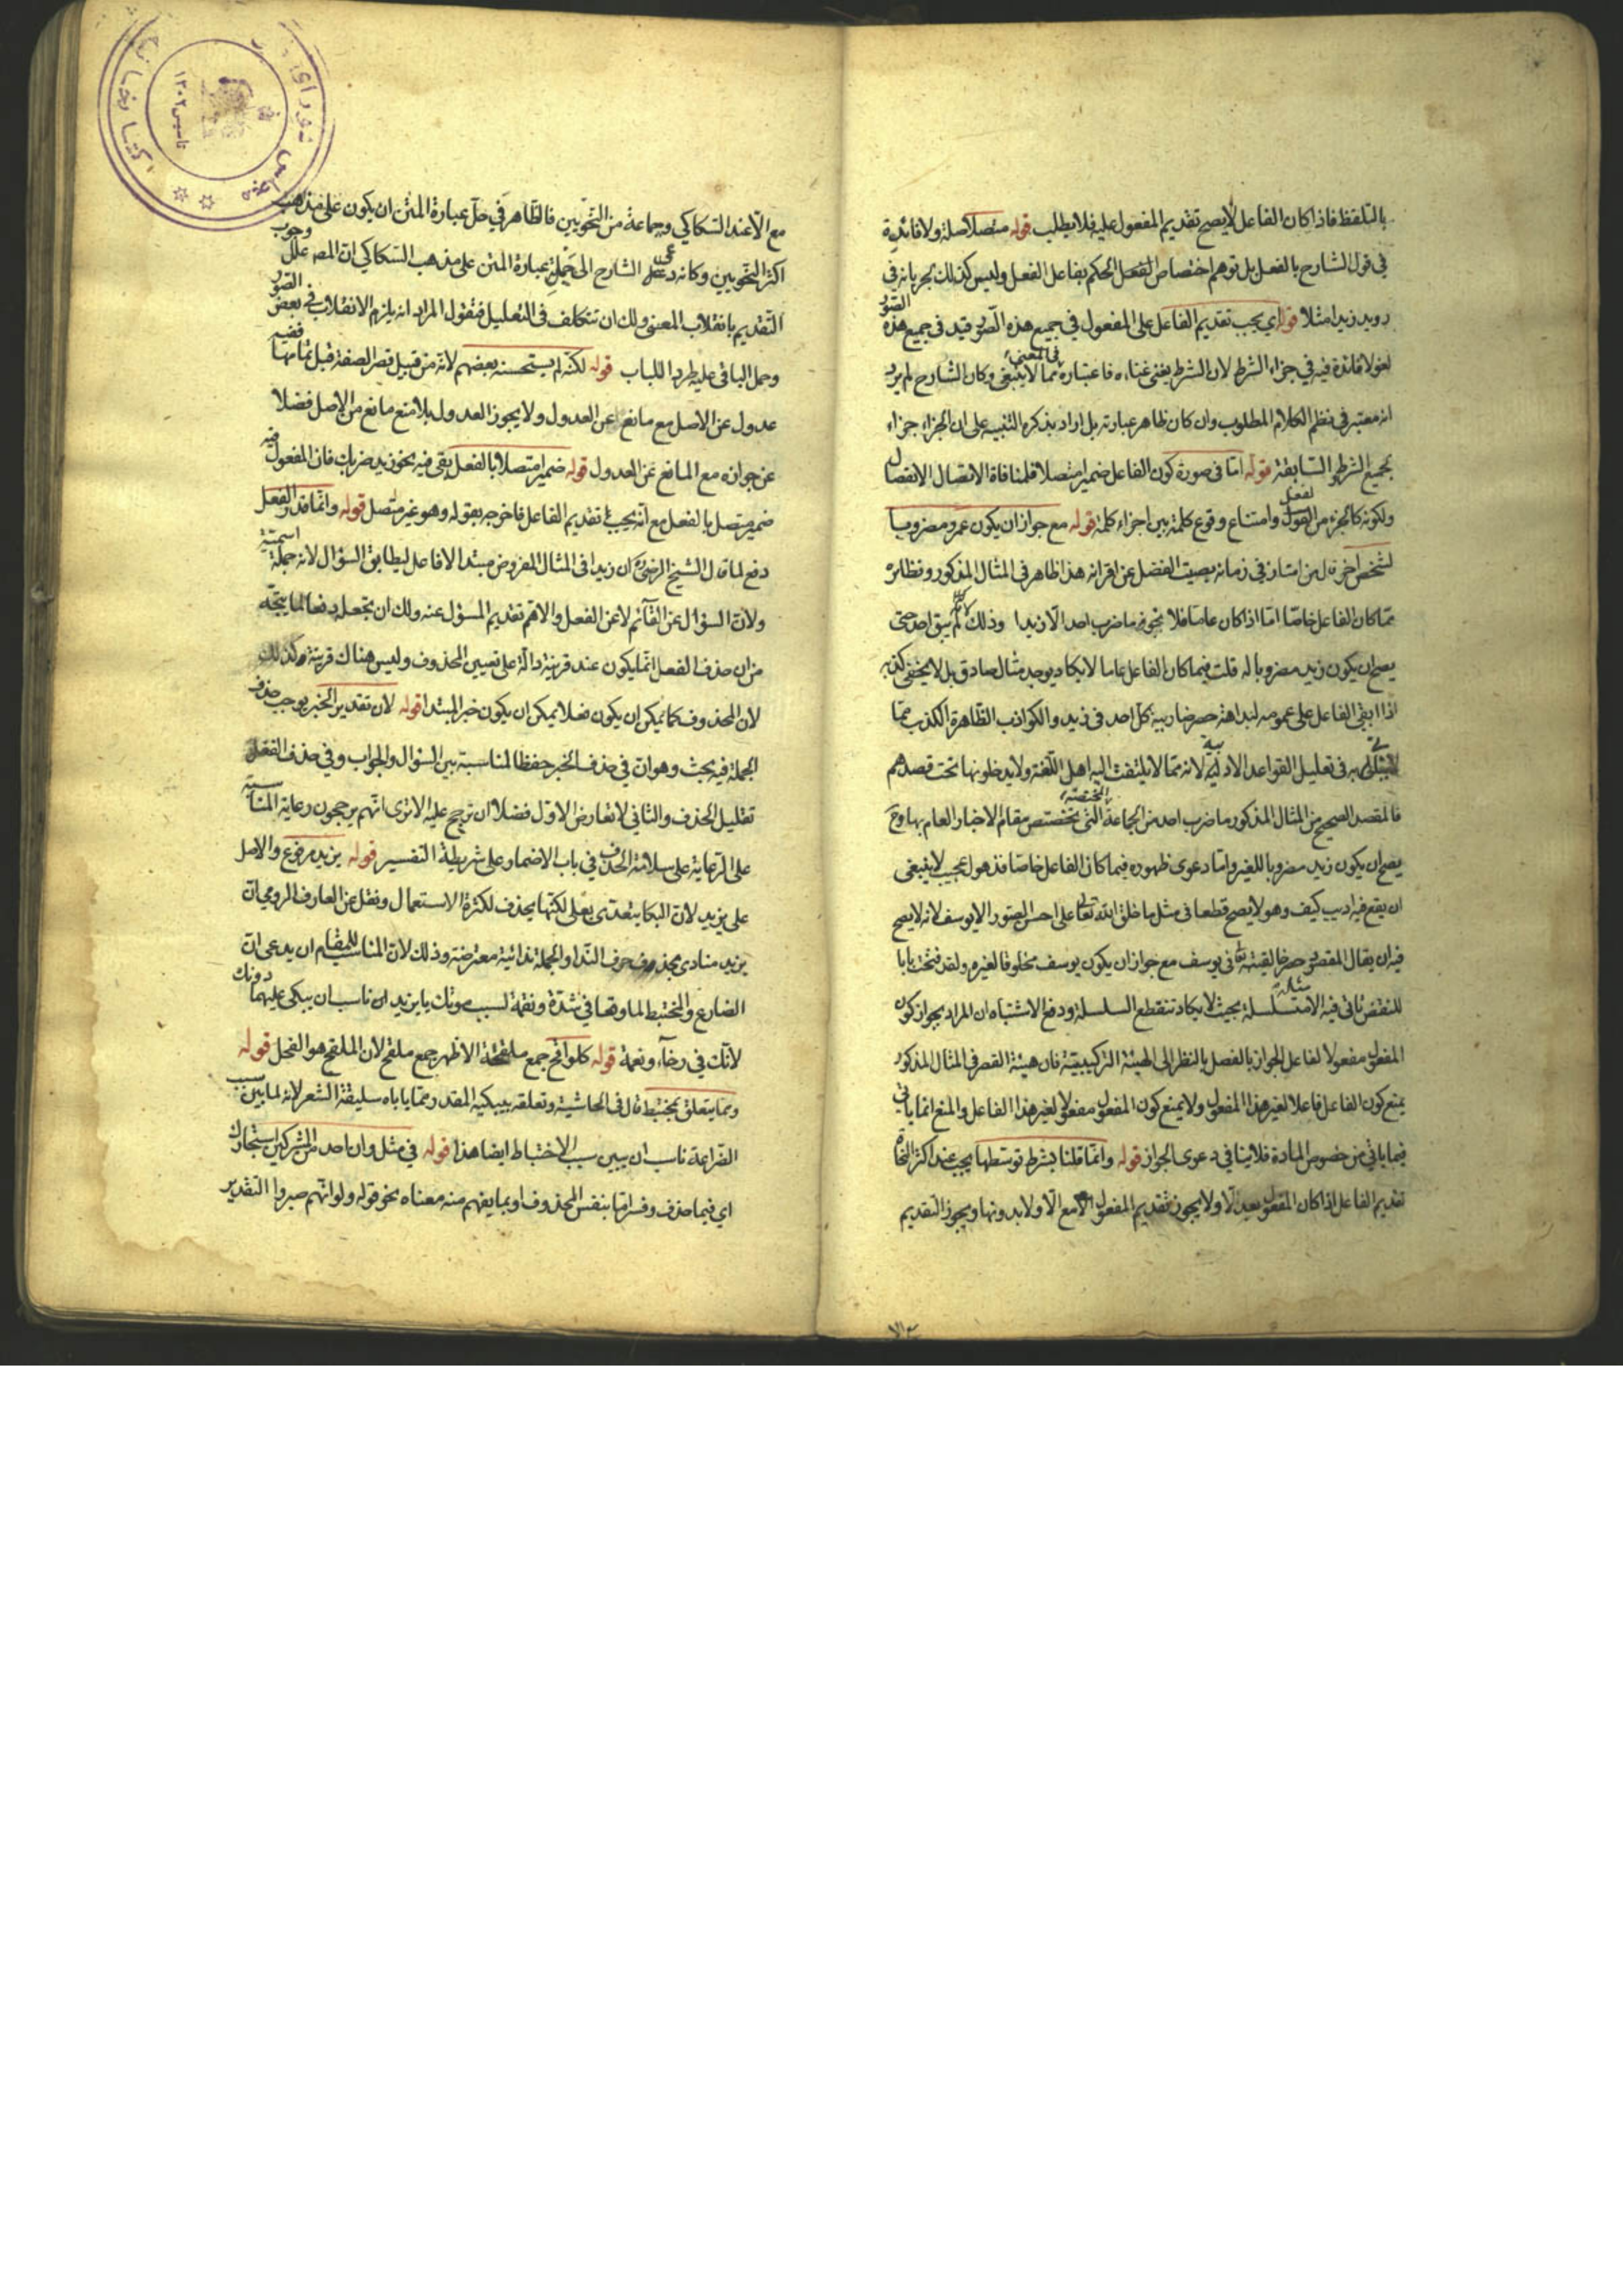 بالتلفظ فاذا كان الفاعل لا يصح تقديم المفعول عليه فلا يطلب قوله متصلا صلة ولا فائدة
في قول الشارح بالفعل بل توهم اختصاص الحكم بفاعل الفعل وليس كذلك لجريانه في
رويد زيدا مثلا قوله اي يجب تقديم الفاعل على المفعول في جميع هذه الصور قيد في جميع هذه الصور
لغو لا فائدة فيه في جزاء الشرط لان الشرط يغني غناءه فاعتباره في المعنى مما لا ينبغي وكان الشارح لم يرد
انه معتبر في نظم الكلام المطلوب وان كان ظاهر عبارته بل اراد بذكره التنبيه على ان الجزاء جزاء
لجميع الشروط السابقة قوله اما في صورة كون الفاعل ضميرا متصلا فلمنافاة الاتصال الانفصال
ولكونه كالجزء من الفعل وامتناع وقوع كلمة بين اجزاء كلمة قوله مع جواز ان يكون عمرو مضروبا
لشخص آخر قال من امتاز في زمانه بصيت الفضل عن اقرانه هذا ظاهر في المثال المذكور ونظائره
مما كان الفاعل خاصا اما اذا كان عاما فلا نحو ما ضرب احد الا زيدا وذلك لانه لم يبق احد حتى
يصح ان يكون زيد مضروبا له قلت فيما كان الفاعل عاما لا يكاد يوجد مثال صادق بل لا يخفى كذبه
اذا ابقي الفاعل على عمومه لبداهة حصر ضاربية كل احد في زيد والكواذب الظاهرة الكذب مما
به في تعليل القواعد الادبية لانه مما لا يلتفت اليه اهل اللغة ولا يدخلونها تحت قصدهم
فالمقصد الصحيح من المثال المذكور ما ضرب احد من الجماعة المختصة التي تختص مقام الاخبار العام بها وح
يصح ان يكون زيد مضروبا للغير واما دعوى ظهوره فيما كان الفاعل خاصا فذهول عجيب لا ينبغي
ان يقع فيه اديب كيف وهو لا يصح قطعا في مثل ما خلق الله تعالى على احسن الصور الا يوسف لانه لا يصح
فيه ان يقال المقصود حصر خالقيته تعالى في يوسف مع جواز ان يكون يوسف مخلوقا لغيره ولقد فتحت بابا
للنقض ياتي فيه الامثال سلسلة بحيث لا يكاد تنقطع السلسلة ودفع الاشتباه ان المراد بجواز كون
المفعول مفعولا لفاعل الجواز بالفصل بالنظر الى الهيئة التركيبية فان هيئة القصر في المثال المذكور
يمنع كون الفاعل فاعلا لغير هذا المفعول ولا يمنع كون المفعول مفعولا لغير هذا الفاعل والمنع انما ياتي
فيما ياتي من خصوص المادة فلا ينافي دعوى الجواز قوله وانما قلنا بشرط توسطها يجب عند اكثر النحاة
تقديم الفاعل اذا كان المفعول بعد الا ولا يجوز تقديم المفعول لا مع الا ولا بدونها ويجوز التقديم
مع الا عند السكاكي وجماعة من النحويين فالظاهر في حل عبارة المتن ان يكون على مذهب
اكثر النحويين وكانه دعى الشارح الى حمله عبارة المتن على مذهب السكاكي ان المص علل وجوب
التقديم بانقلاب المعنى ولك ان تتكلف في التعليل فتقول المراد انه يلزم الانقلاب في بعض الصور
وحمل الباقي عليه طردا للباب قوله لكنه لم يستحسنه بعضهم لانه من قبيل قصر الصفة قبل تمامها ففيه
عدول عن الاصل مع مانع عن العدول ولا يجوز العدول بلا منع مانع من الاصل فضلا
عن جوازه مع المانع عن العدول قوله ضميرا متصلا بالفعل بقي فيه نحو زيد ضربك فان المفعول فيه
ضمير متصل بالفعل مع انه يجب تقديم الفاعل فاخرجه بقوله وهو غير متصل قوله وانما قدر الفعل
دفع لما قال الشيخ الرضي ان زيدا في المثال المفروض مبتدا لا فاعل ليطابق السؤال لانه جملة اسمية
ولان السؤال عن القائم لا عن الفعل والاهم تقديم المسؤل عنه ولك ان تجعل دفعا لما يتجه
من ان حذف الفعل انما يكون عند قرينة دالة على تعيين المحذوف وليس هناك قرينة كذلك
لان المحذوف كما يمكن ان يكون فعلا يمكن ان يكون خبر المبتدا قوله لان تقدير الخبر يوجب حذف
الجملة فيه بحث وهو ان في حذف الخبر حفظا لمناسبة بين السؤال والجواب وفي حذف الفعل
تقليل الحذف والثاني لا تعارض الاول فضلا ان ترجح عليه الا ترى انهم يرجحون رعاية المناسبة
على الرعاية على سلامة الحذف في باب الاضمار على شريطة التفسير قوله يزيد مرفوع والاصل
على يزيد لان البكا يتعدى بعلى لكنها يحذف لكثرة الاستعمال ونقل عن العارف الرومي ان
يزيد منادى بحذف حرف الندا والجملة ندائية معترضة وذلك لان المناسب للمقام ان يدعى ان
الضارع والمختبط لما وقعا في شدة ونقمة لسبب موتك يا يزيد ان ناسب ان يبكى عليهما دونك
لانك في رخاء ونعمة قوله كلواقح جمع ملقحة الاظهر جمع ملقح لان الملقح هو الفحل قوله
ومما يتعلق بمختبط قال في الحاشية وتعلقه بيبكيه المقدر مما ياباه سليقة الشعر لانه لما بين سبب
الضراعة ناسب ان يبين سبب الاختباط ايضا هذا قوله في مثل وان احد من المشركين استجارك
اي فيما حذف وفسر اما بنفس المحذوف او بما يفهم منه معناه نحو قوله ولو انهم صبروا التقدير